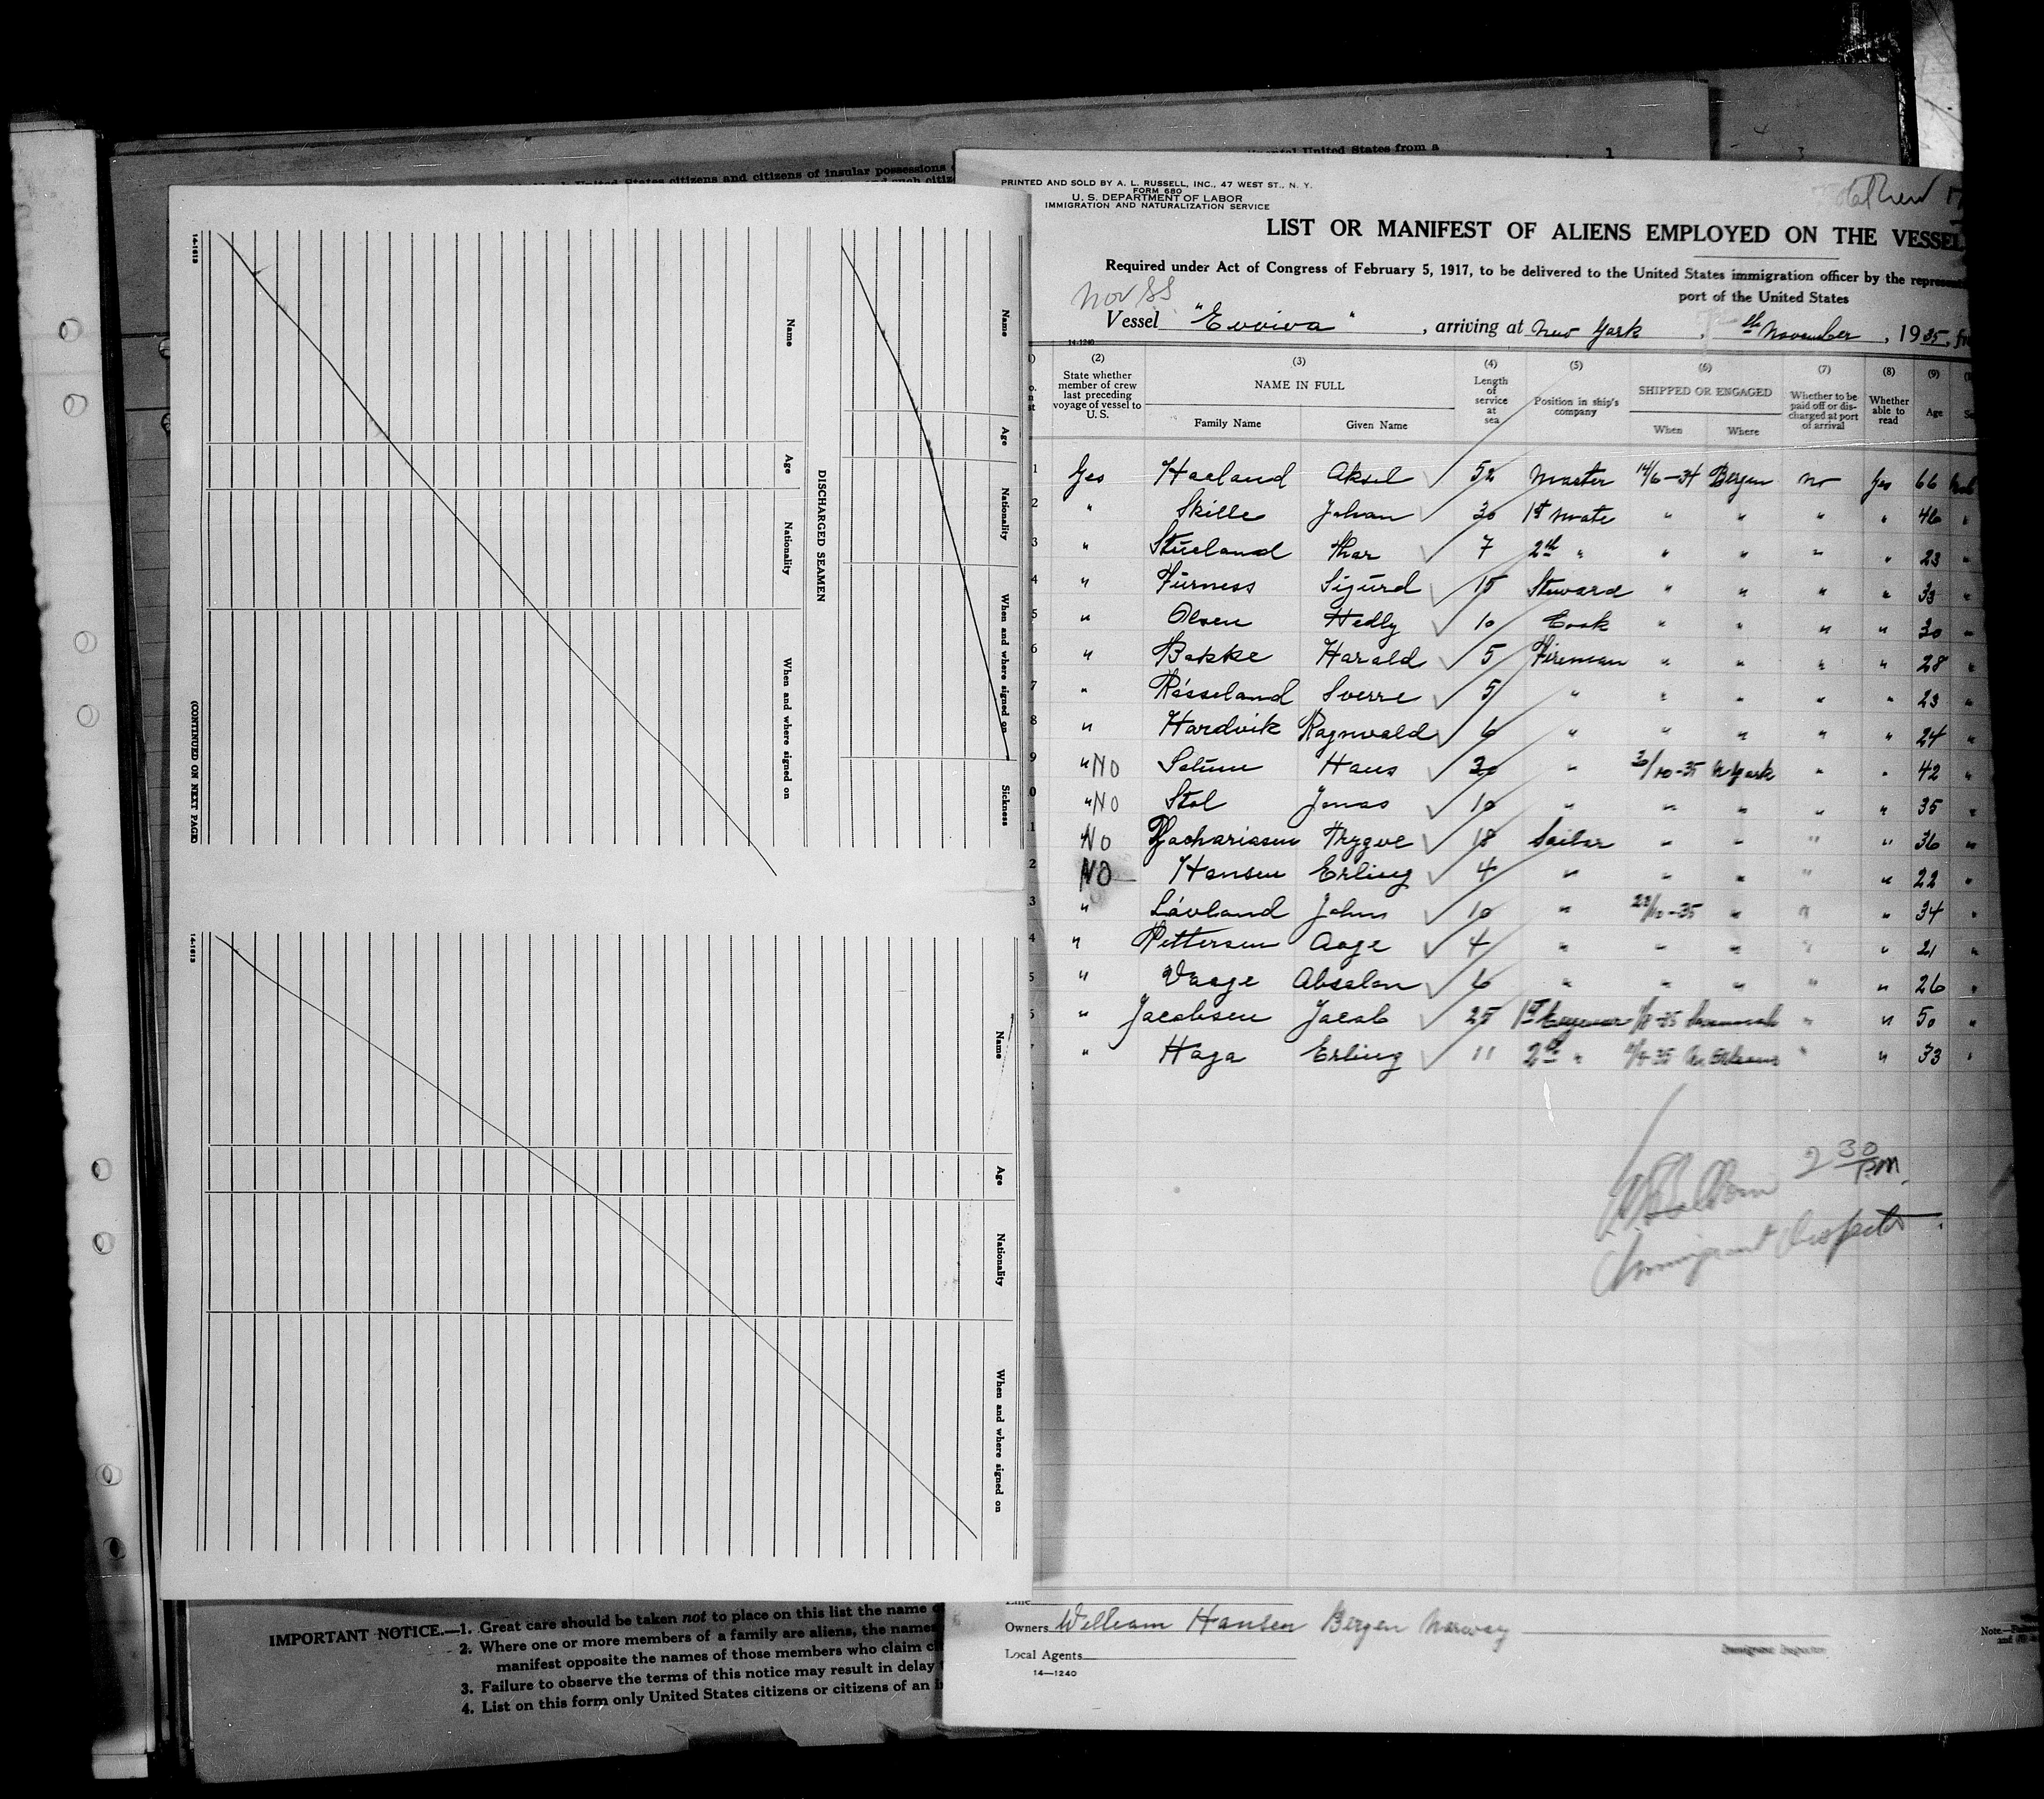 ntinental United States from a
United States citizens and citizens of insular possessions
14-1613
Name
Age
Nationality
When and where signed on
(CONTINUED ON NEXT PAGE)
DISCHARGED SEAMEN
Name
Age
Nationality
When and where signed on
Sickness
14-1613
Name
Age
Nationality
When and where signed on
IMPORTANT NOTICE.—1. Great care should be taken not to place on this list the name
2. Where one or more members of a family are aliens, the names
manifest opposite the names of those members who claim
3. Failure to observe the terms of this notice may result in delay
4. List on this form only United States citizens or citizens of an
PRINTED AND SOLD BY A. L. RUSSELL, INC., 47 WEST ST., N. Y.
FORM 680
U. S. DEPARTMENT OF LABOR
IMMIGRATION AND NATURALIZATION SERVICE
LIST OR MANIFEST OF ALIENS EMPLOYED ON THE VESSEL
Required under Act of Congress of February 5, 1917, to be delivered to the United States immigration officer by the represent
port of the United States
Nor SS
Vessel "Evviva", arriving at New York, th November, 1935, fr
14-1240
(2) (3) (4) (5) (6) (7) (8) (9)
State whether member of crew last preceding voyage of vessel to U. S.
NAME IN FULL
Family Name Given Name
Length of service at sea
Position in ship's company
SHIPPED OR ENGAGED
When Where
Whether to be paid off or discharged at port of arrival
Whether able to read
Age
1 Yes Haeland Aksel 52 Master 14/6-34 Bergen no Yes 66
2 " Skille Johan 30 1st Mate " " " " 46 "
3 " Stueland Thor 7 2th " " " " " 23 "
4 " Furness Sigurd 15 Steward " " " " 33 "
5 " Olsen Hedly 10 Cook " " " " 30 "
6 " Bakke Harald 5 Fireman " " " " 28 "
7 " Rosseland Sverre 5 " " " " " 23 "
8 " Hardvik Ragnvald 6 " " " " " 24 "
9 " NO Hans 30 " 10-35 N York " " 42 "
0 " NO Stol Jonas 10 " " " " " 35 "
1 NO Zachariasen Trygve 18 Sailor " " " " 36 "
2 NO Hansen Erling 4 " " " " " 22 "
3 " Lovland John 10 " 23/10-35 " " " 34 "
4 " Pettersen Aage 4 " " " " " 21 "
5 " Vaage Absalon 6 " " " " " 26 "
6 " Jacobsen Jacob 25 1st Savannah " " 50 "
7 " Haga Erling 11 2th " " " 33 "
2 30 P.M.
Immigrant Inspector
Line
Owners William Hansen Bergen Norway
Local Agents
Immigrant Inspector
14—1240
Note.—